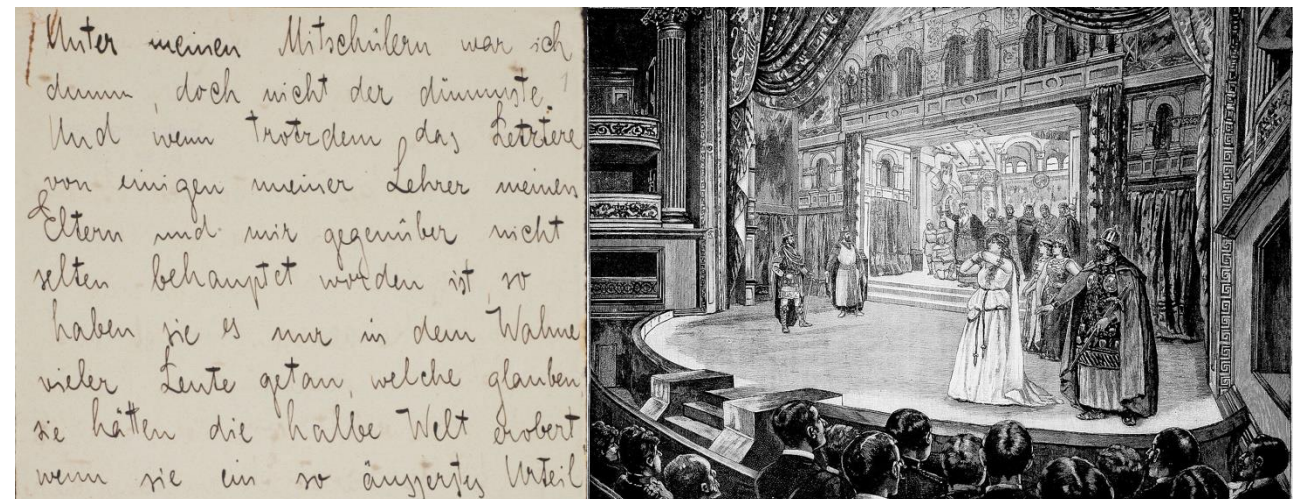 Unter meinen Mitschülern war ich
dumm, doch nicht der dümmste.
Und wenn trotzdem das Letztere
von einigen meiner Lehrer meinen
Eltern und mir gegenüber nicht
selten behauptet worden ist, so
haben sie es nur in dem Wahne
vieler Leute getan, welche glauben
sie hätten die halbe Welt erobert
wenn sie ein so äusserstes Urteil